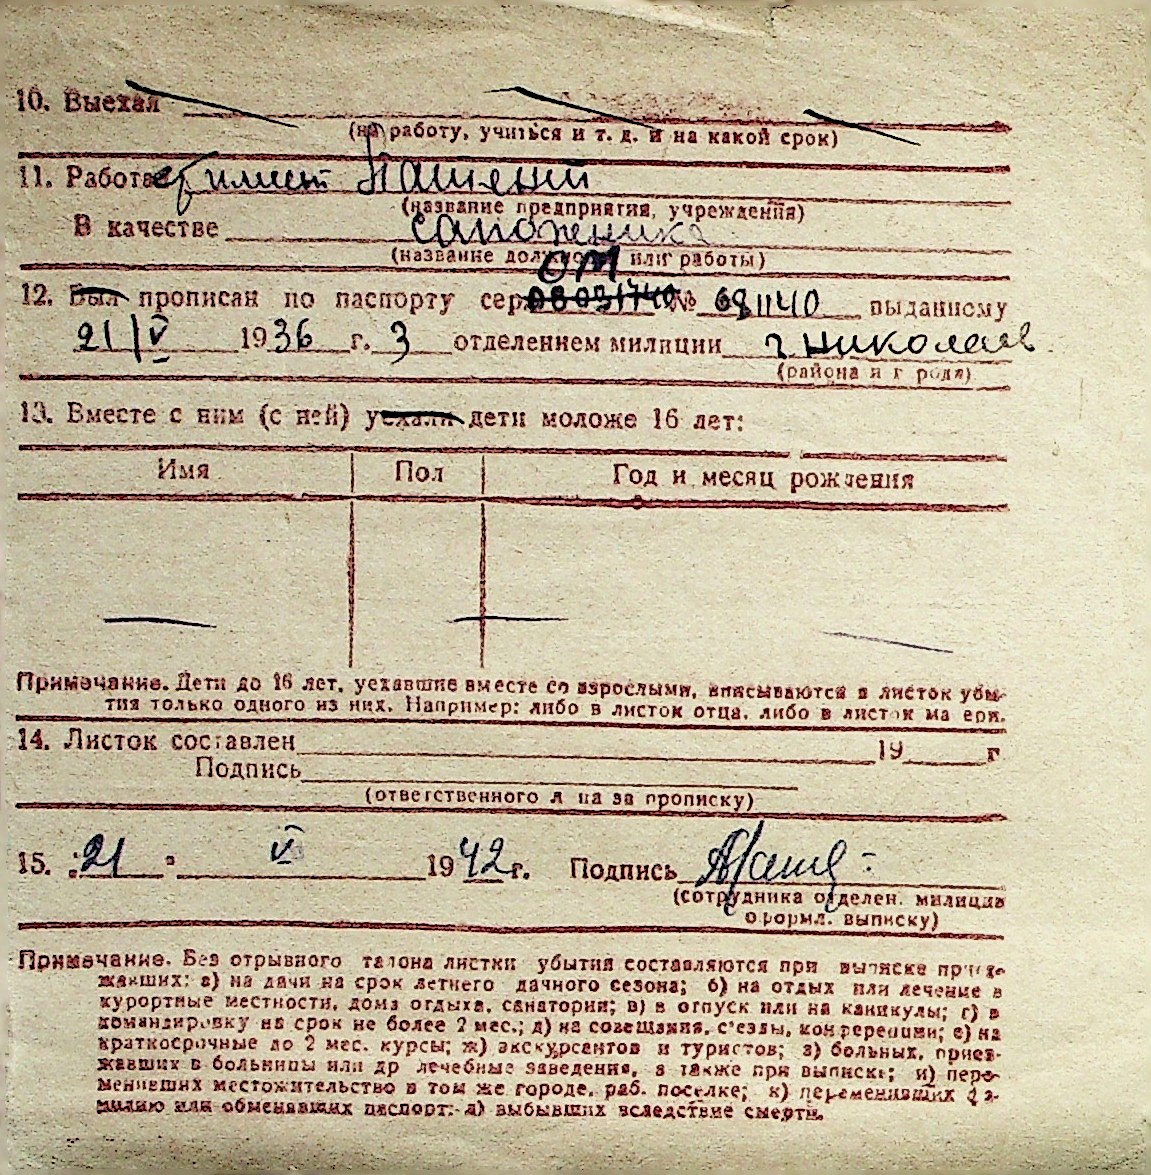 10. Выехал
(на работу, учиться и т. д. и на какой срок)
11. Работает
(название предприятия, учреждения)
В качестве сапожника
(название должности или работы)
ОМ
12. Был прописан по паспорту сер. № 681140 выданному
21/V 1936 г. 3 отделением милиции г. Николаев
(района и города)
13. Вместе с ним (с ней) уехали дети моложе 16 лет:
Имя Пол Год и месяц рождения
Примечание. Дети до 16 лет, уехавшие вместе со взрослыми, вписываются в листок убы-
тия только одного из них. Например: либо в листок отца, либо в листок матери.
14. Листок составлен 19 г
Подпись
(ответственного лица за прописку)
15. "21" V 1942 г. Подпись
(сотрудника отделен. милиции
оформл. выписку)
Примечание. Без отрывного талона листки убытия составляются при выписке приез-
жавших: а) на дачи на срок летнего дачного сезона; б) на отдых или лечение в
курортные местности, дома отдыха, санатории; в) в отпуск или на каникулы; г) в
командировку на срок не более 2 мес.; д) на совещания, с'езды, конференции; е) на
краткосрочные до 2 мес. курсы; ж) экскурсантов и туристов; з) больных, приез-
жавших в больницы или др лечебные заведения, а также при выписке; и) пере-
менивших местожительство в том же городе, раб. поселке; к) переменивших фа-
милию или обменявших паспорт; л) выбывших вследствие смерти.